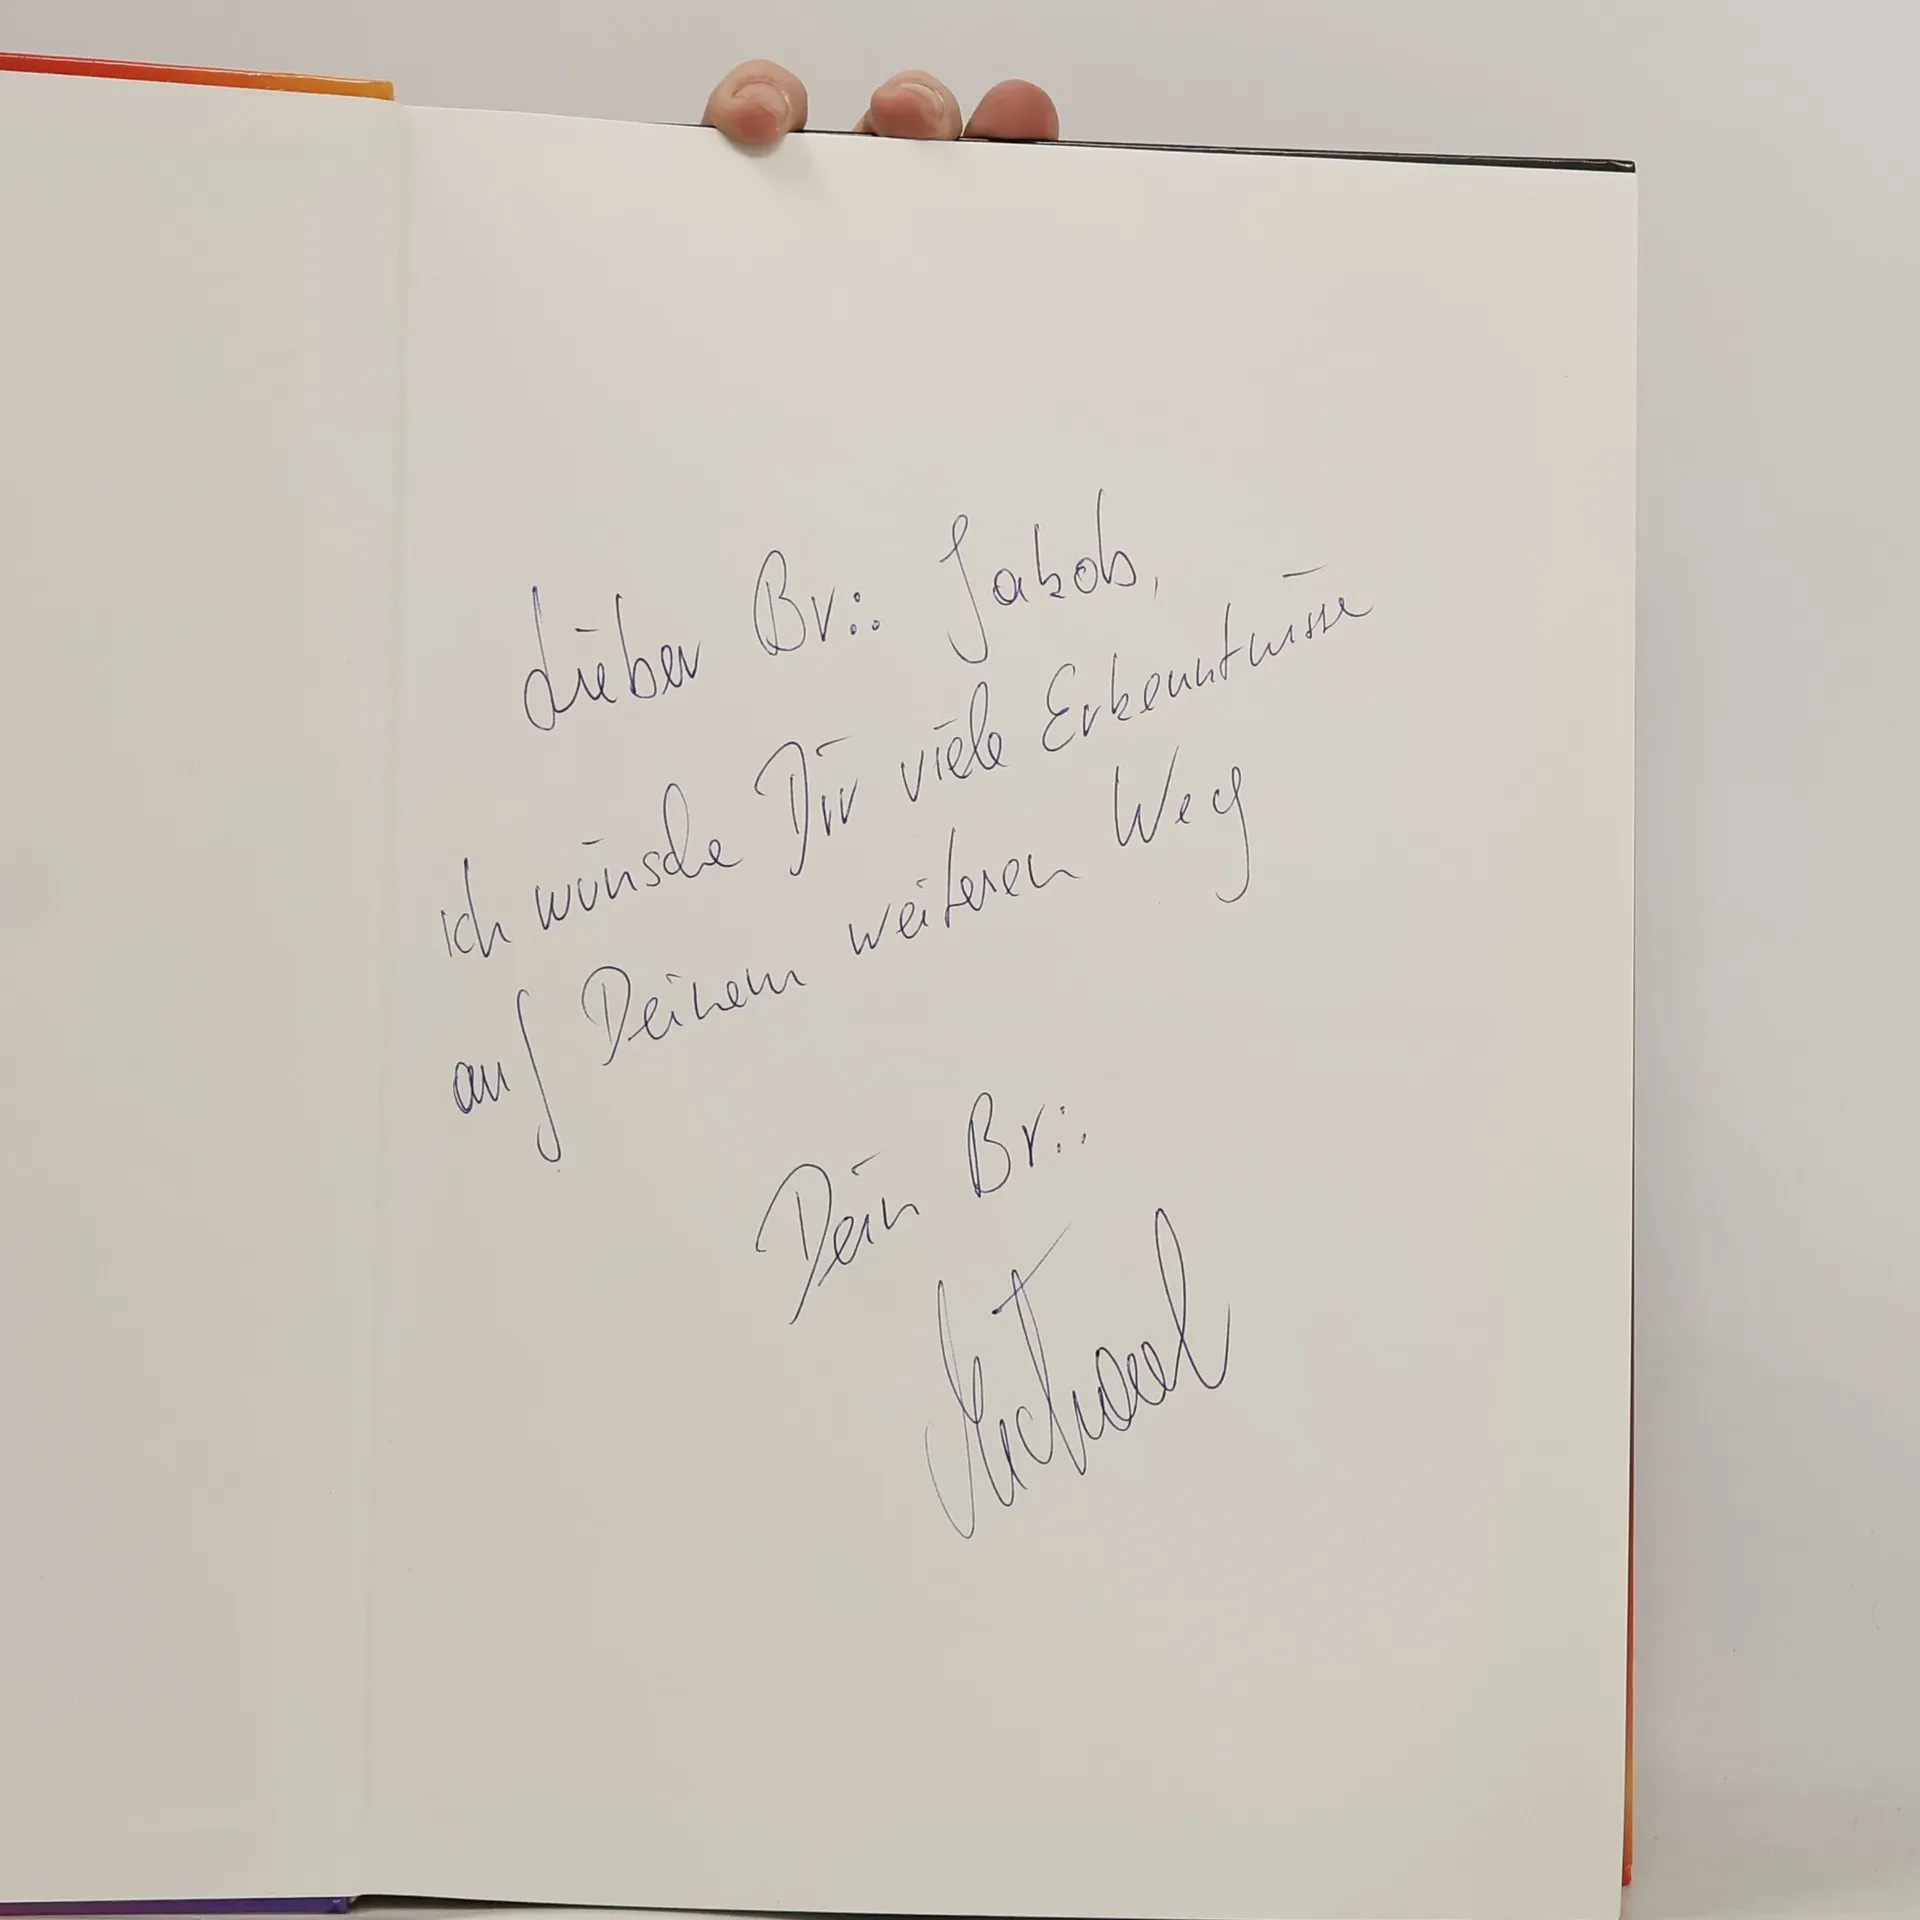 Lieber Br∴ Jakob,
ich wünsche Dir viele Erkenntnisse
auf Deinem weiteren Weg
Dein Br∴
Michael